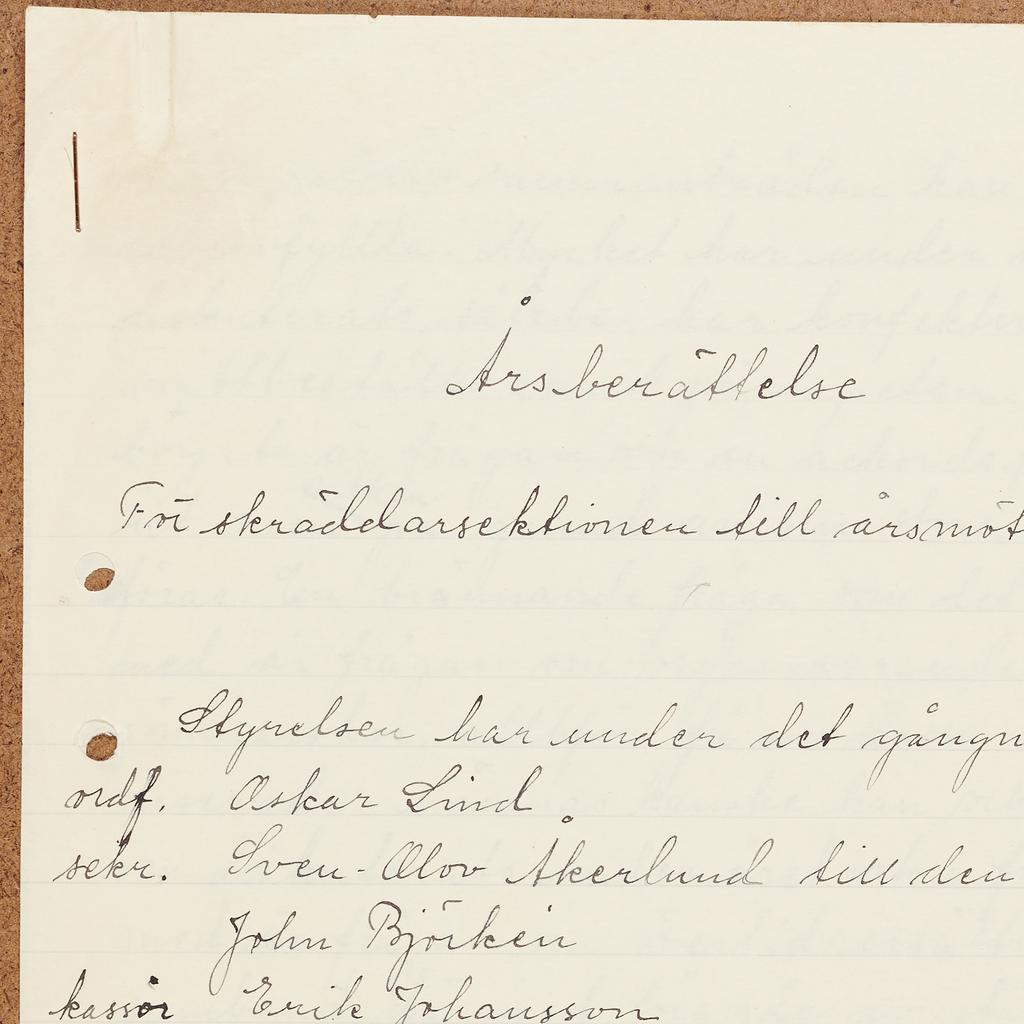 Årsberättelse
För skräddarsektionen till årsmöt
Styrelsen har under det gångn
ordf. Oskar Lind
sekr. Sven-Olov Åkerlund till den
John Björkén
kassör Erik Johansson